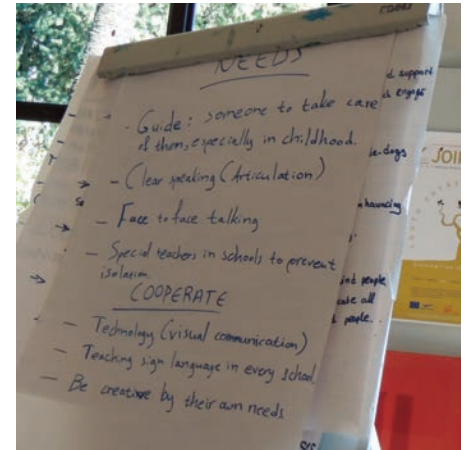 NEEDS
- Guide: someone to take care
of them, especially in childhood.
- Clear speaking (Articulation)
- Face to face talking
- Special teachers in schools to prevent
isolation.
COOPERATE
- Technology (visual communication)
- Teaching sign language in every school.
- Be creative by their own needs
support
engage
dogs
people
all
people.
JOIN